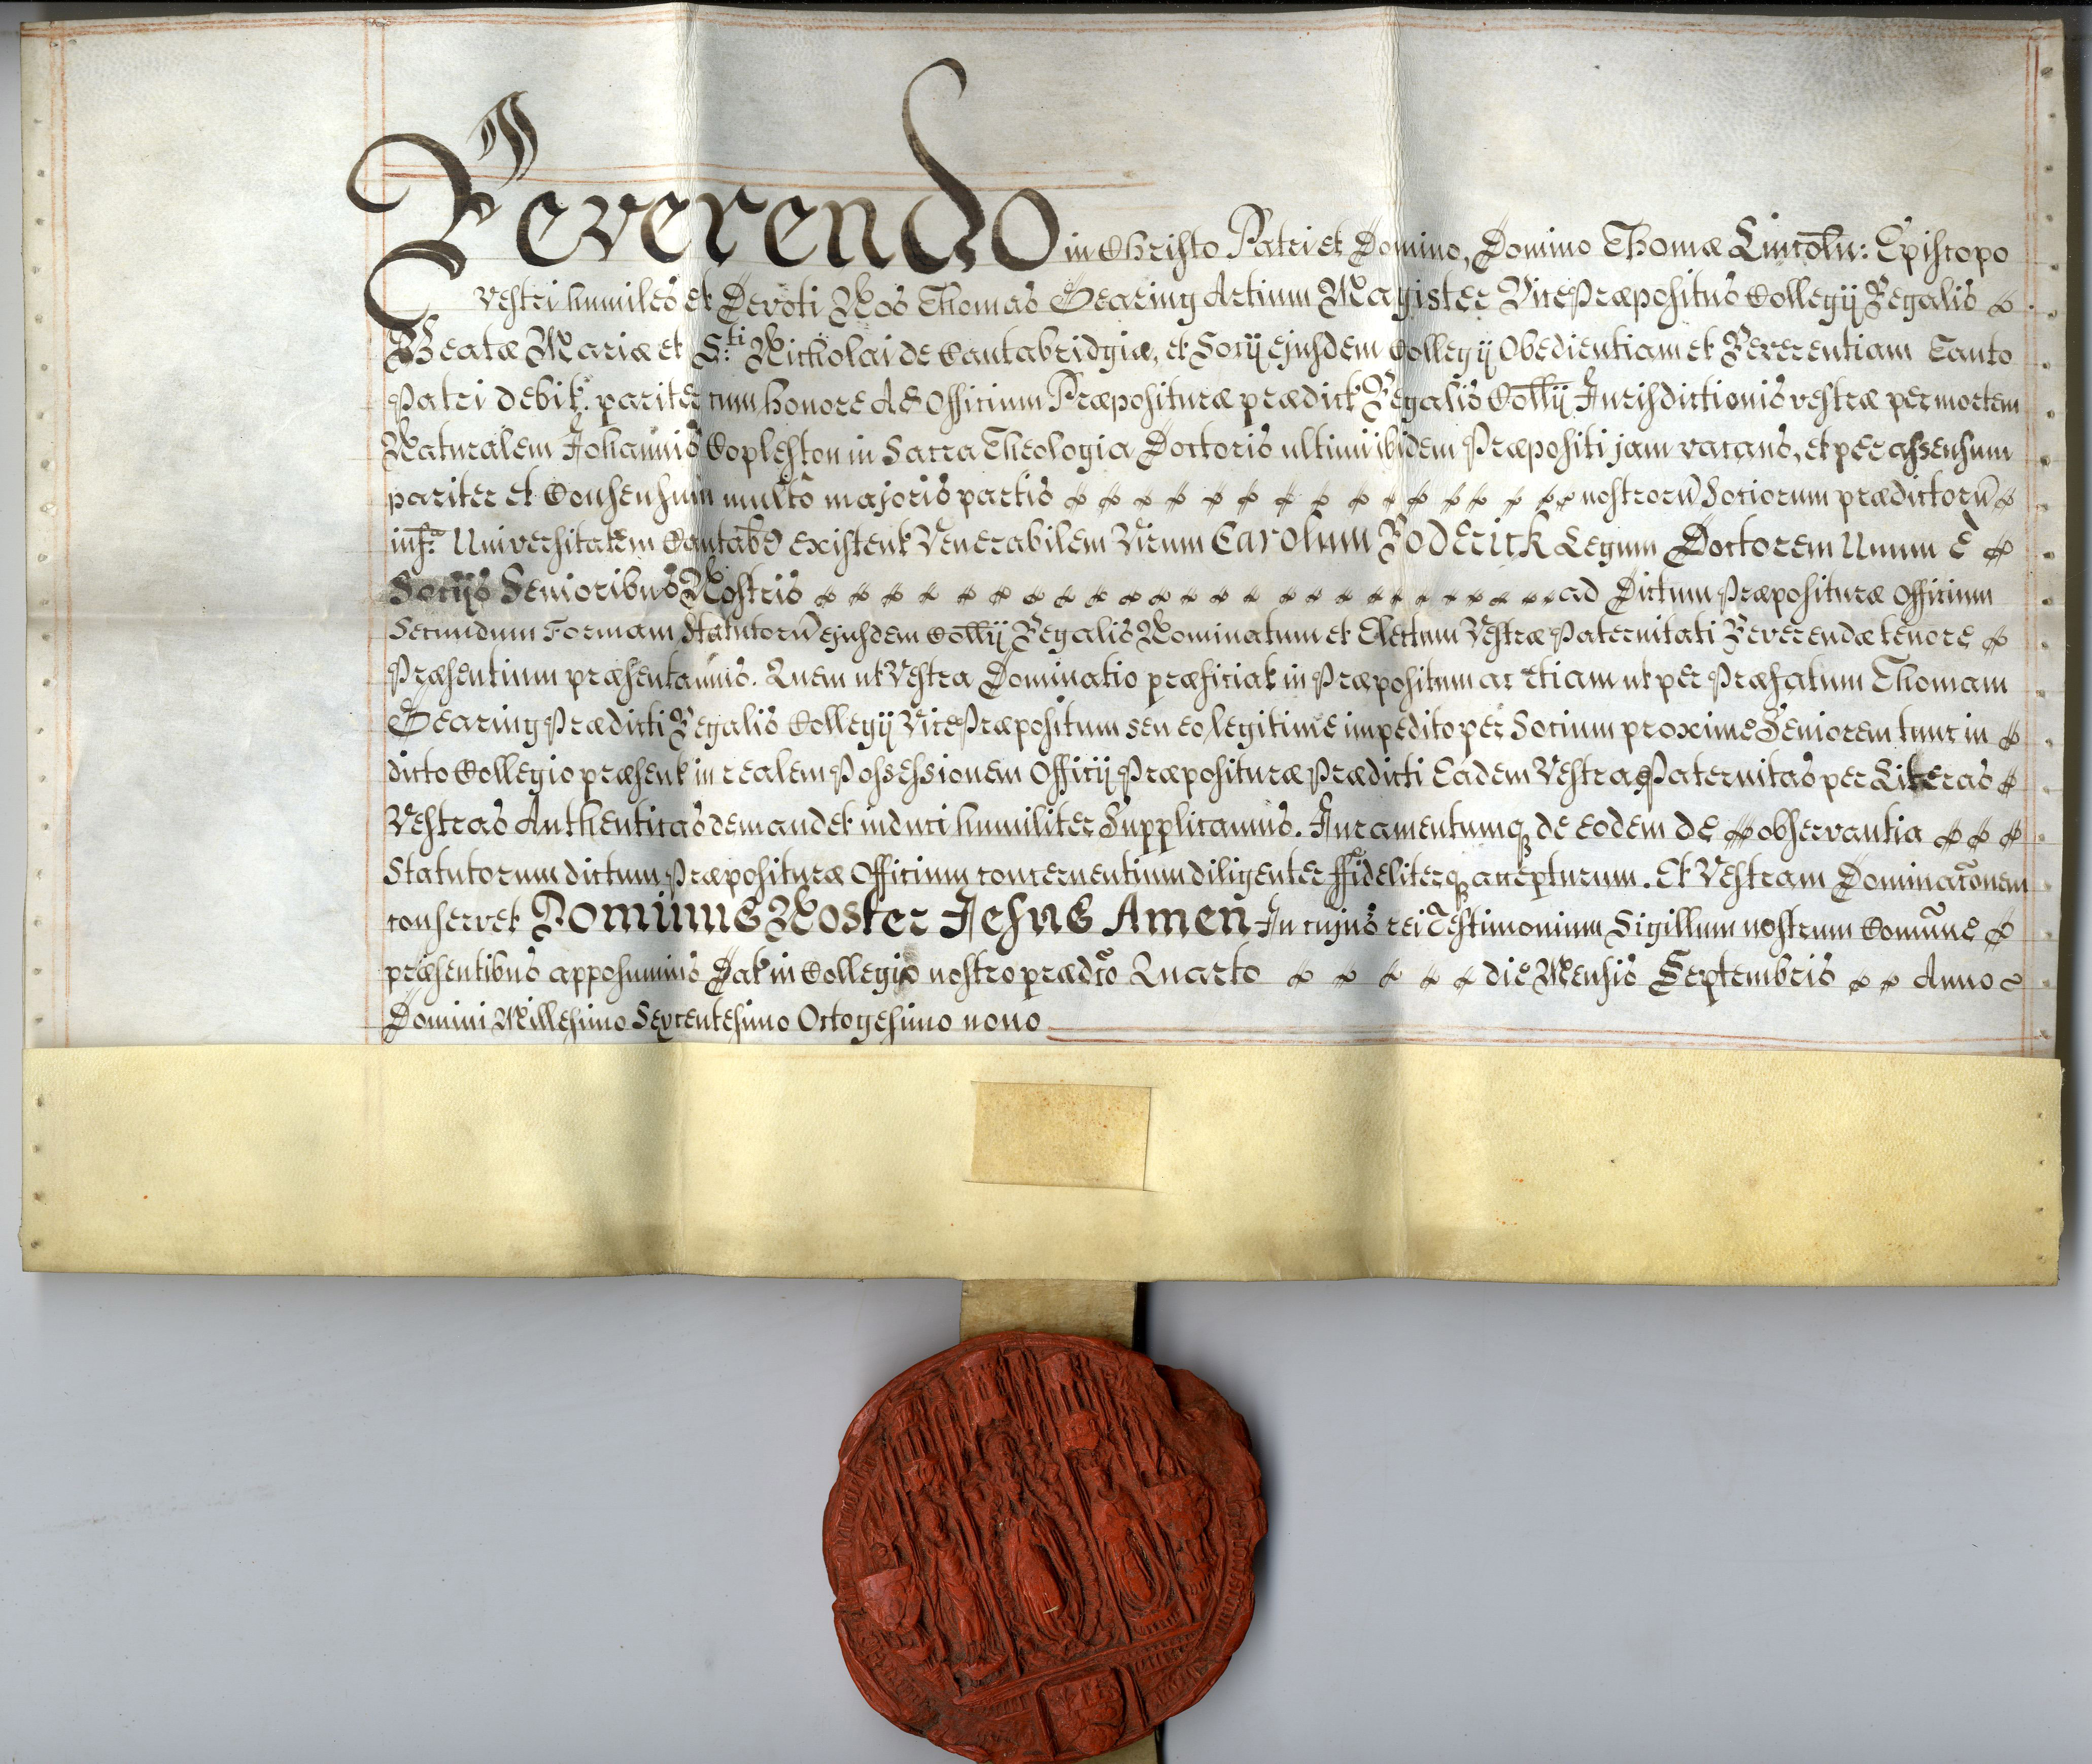 Reverendo in Christo Patri et Domino, Domino Thomæ Lincoln: Episcopo
vestri humiles et Devoti Nos Thomas Gearing Artium Magister Vice Præpositus Collegij Regalis
Beatæ Mariæ et S:ti Nicholai de Cantabridgia, et Socij ejusdem Collegij Obedientiam et Reverentiam Tanto
Patri debit. pariter cum honore Ad Officium Præposituræ prædict Regalis Collij Jurisdictionis vestræ per mortem
Naturalem Johannis Copleston in Sacra Theologia Doctoris ultimi ibidem Præpositi jam vacans, et per assensum
pariter et Consensum multo majoris partis nostrorũ Sociorum prædictorũ
infra Universitatem Cantabr existent Venerabilem Virum Carolum Roderick Legum Doctorem Unum è
Socijs Senioribus Nostris ad Dictum Præposituræ Officium
Secundum Formam Statutorũ ejusdem Collij Regalis Nominatum et Electum Vestræ Paternitati Reverendæ tenore
Præsentium præsentamus. Quem ut Vestra Dominatio præficiat in Præpositum ac etiam ut per Præfatum Thomam
Gearing Prædicti Regalis Collegij Vice Præpositum seu eo legitime impedito per Socium proxime Seniorem tunc in
dicto Collegio præsent in realem Possessionem Officij Præposituræ Prædicti Eadem Vestra Paternitas per Literas
Vestras Authenticas demandet induci humiliter Supplicamus. Juramentumq de eodem de observantia
Statutorum dictum Præposituræ Officium concernentium diligenter ffideliterq accepturum. Et Vestram Dominacõnem
conservet Dominus Noster Jesus Amen In cujus rei Testimonium Sigillum nostrum Comune
præsentibus apposuimus Dat in Collegio nostro prædco Quarto die Mensis Septembris Anno
Domini Millesimo Sexcentesimo Octogesimo nono